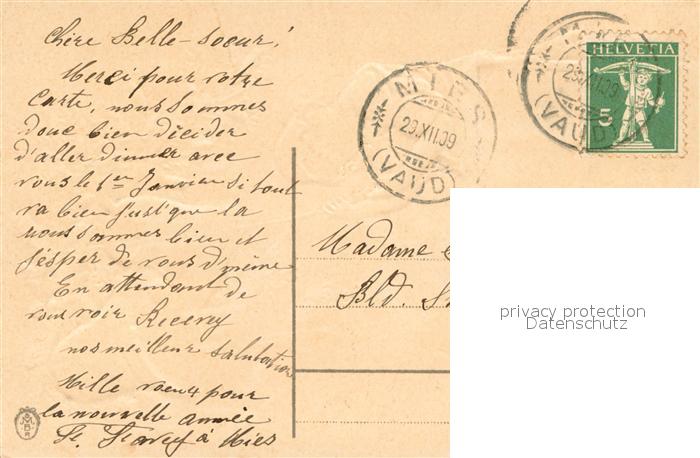 chère Belle-soeur!
Merci pour votre
carte, nous sommes
donc bien décider
d'aller dinner avec
vous le 1er Janvier si tout
va bien jusl'que la
nous sommes bien et
j'ésper de vous d'même
En attendant de
vous voir Recevez
nos meilleur salutation
Mille voeux pour
la nouvelle année
à Mies
MIES
29.XII.09
(VAUD)
HELVETIA
5
29.XII.09
(VAUD)
Madame
Bld.
privacy protection
Datenschutz